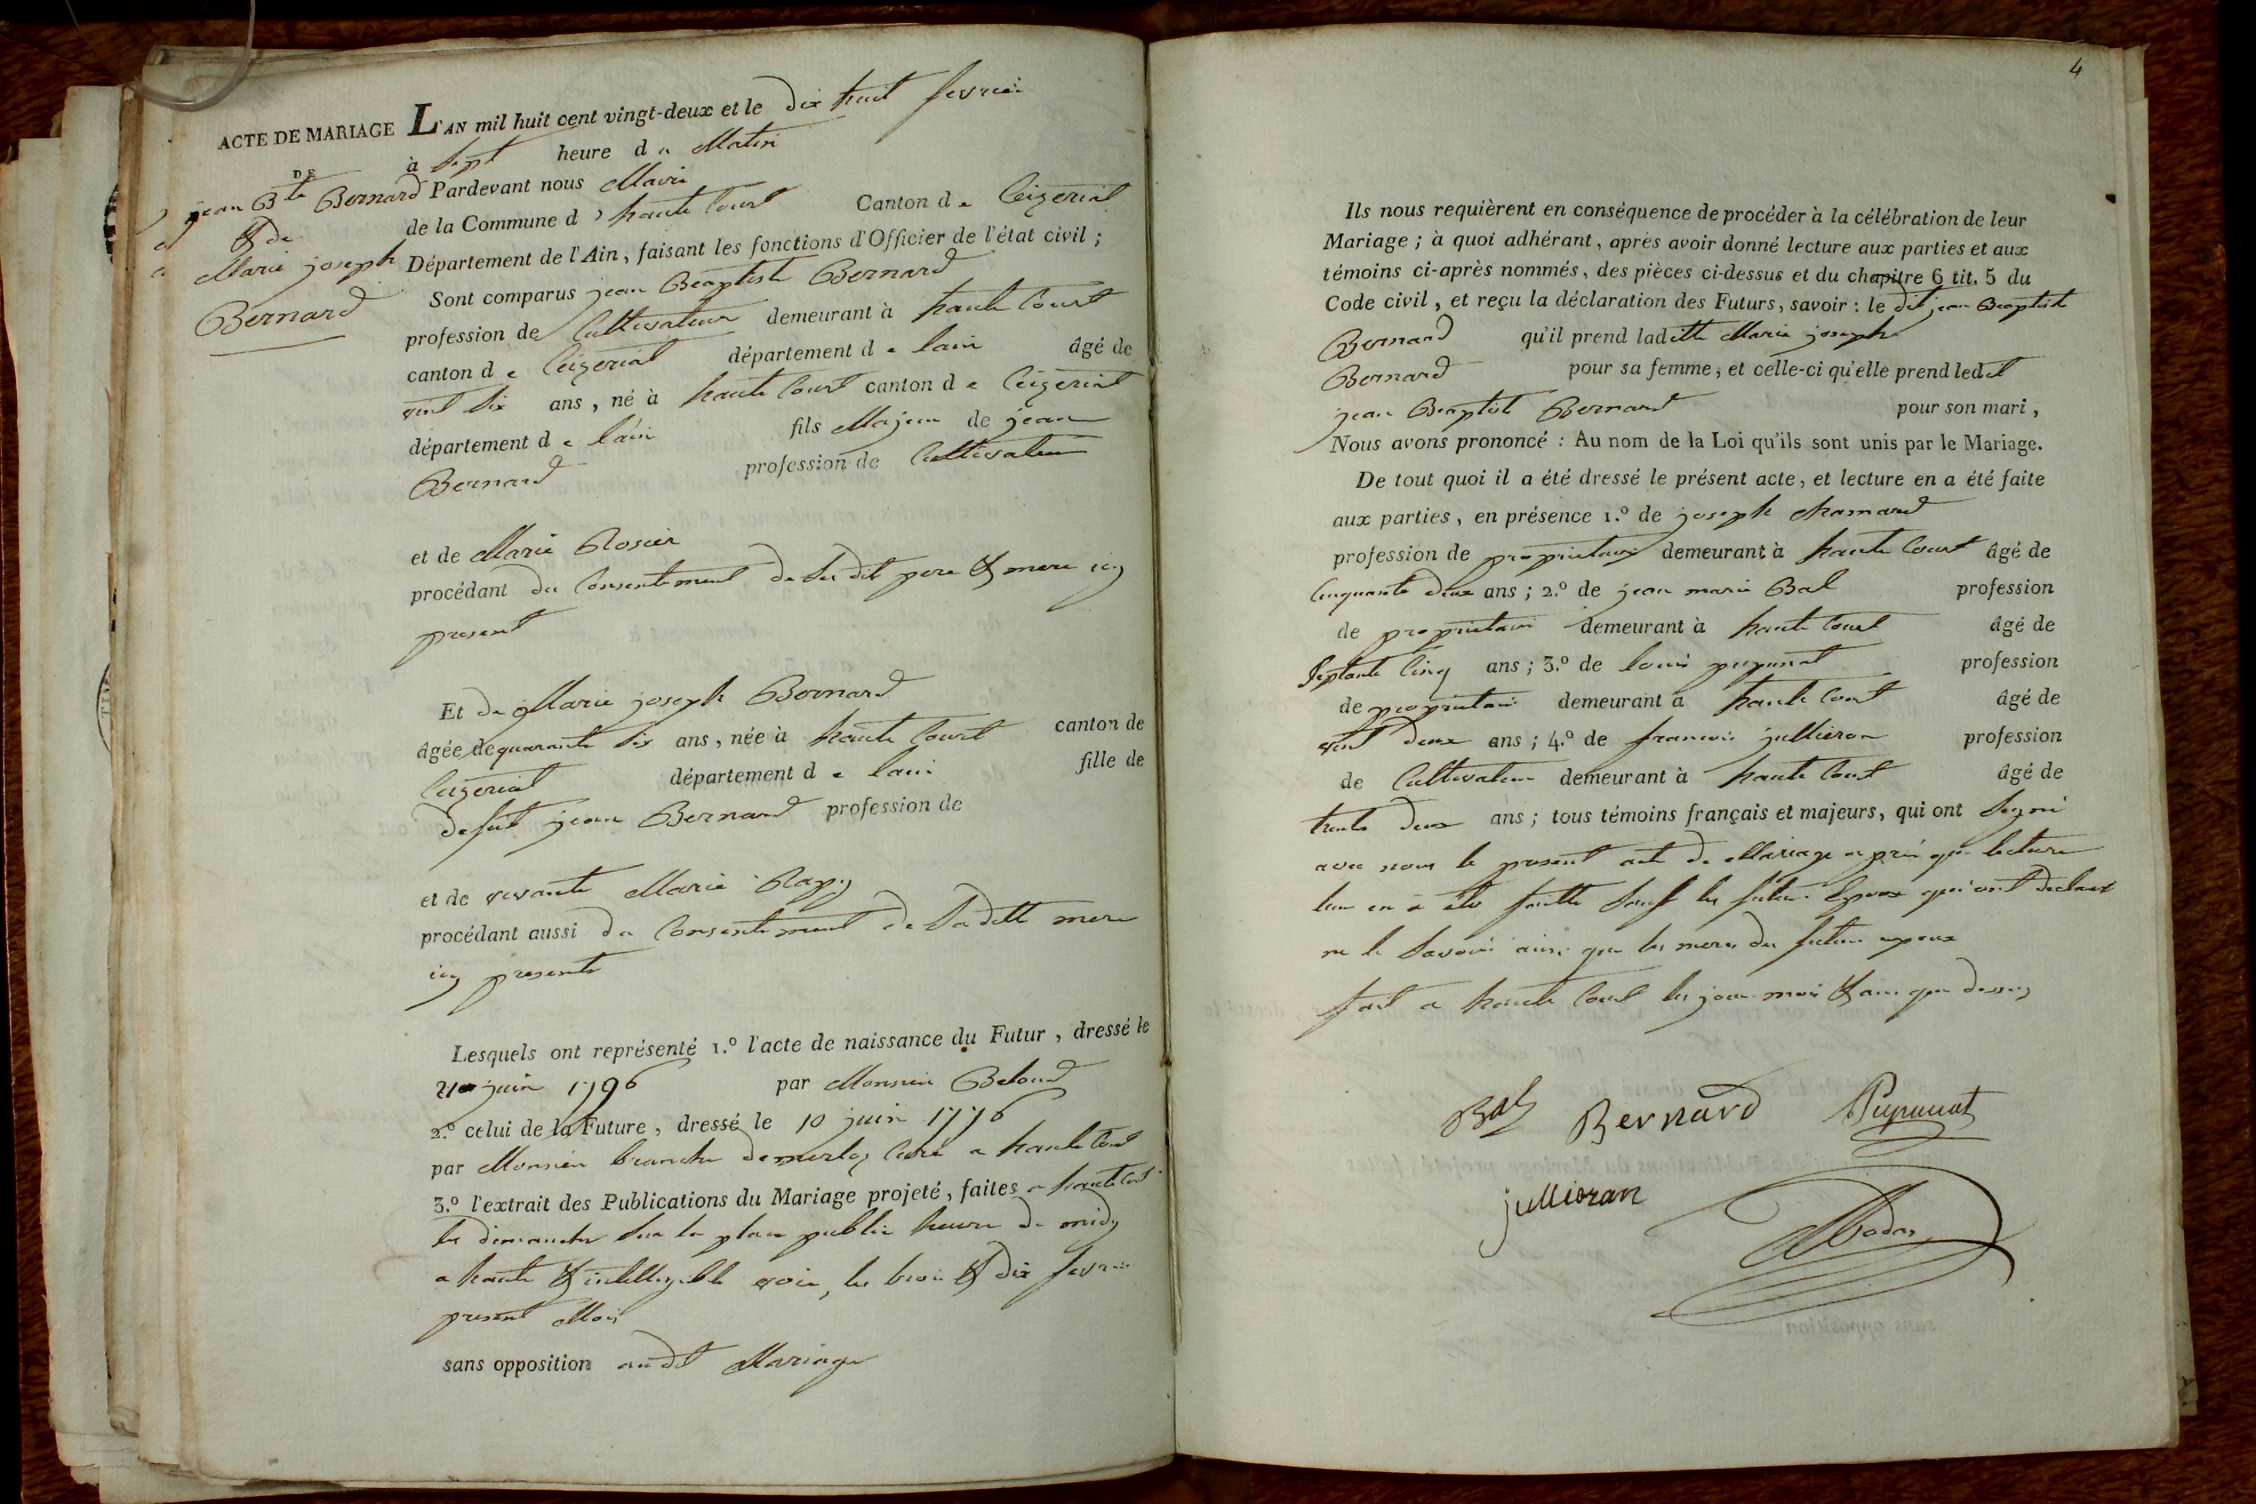 ACTE DE MARIAGE
DE
jean Bte Bernard
& de
Marie joseph
Bernard
L'AN mil huit cent vingt-deux et le dix huit fevrier
à sept heure du Matin
Pardevant nous Maire
de la Commune d'haute Court Canton de Ceizeriat
Département de l'Ain, faisant les fonctions d'Officier de l'état civil;
Sont comparus jean Beaptiste Bernard
profession de Cultivateur demeurant à haute Court
canton de Ceizeriat département de lain âgé de
vint six ans, né à haute Court canton de Ceizeriat
département de lain fils Majeur de jean
Bernard profession de Cultivateur
et de Marie Rosier
procédant du Consentement de ses dit pere & mere icy
present
Et de Marie joseph Bernard
âgée de quarante six ans, née à haute Court canton de
Ceizeriat département de lain fille de
defut jean Bernard profession de
et de vivante Marie Rapy
procédant aussi du Consentement de sa ditte mere
icy presente
Lesquels ont représenté 1.º l'acte de naissance du Futur, dressé le
21 juin 1796 par Monsieur
2.º celui de la Future, dressé le 10 juin 1776
par Monsieur Curé a haute Court
3.º l'extrait des Publications du Mariage projeté, faites a haute Court
les dimanche sur la place public heure de midy
a haute & intelligible voix, les trois & dix fevrier
present Mois
sans opposition audit Mariage
4
Ils nous requièrent en conséquence de procéder à la célébration de leur
Mariage; à quoi adhérant, après avoir donné lecture aux parties et aux
témoins ci-après nommés, des pièces ci-dessus et du chapitre 6 tit. 5 du
Code civil, et reçu la déclaration des Futurs, savoir: le dit jean Beaptiste
Bernard qu'il prend laditte Marie joseph
Bernard pour sa femme, et celle-ci qu'elle prend ledit
jean Beaptist Bernard pour son mari,
Nous avons prononcé: Au nom de la Loi qu'ils sont unis par le Mariage.
De tout quoi il a été dressé le présent acte, et lecture en a été faite
aux parties, en présence 1.º de joseph
profession de proprietaire demeurant à haute Court âgé de
Cinquante deux ans; 2.º de jean marie Bal profession
de proprietaire demeurant à haute Court âgé de
septante Cinq ans; 3.º de louis pupunat profession
de proprietaire demeurant à haute Court âgé de
vint deux ans; 4.º de francois jullieron profession
de Cultivateur demeurant à haute Court âgé de
trente deux ans; tous témoins français et majeurs, qui ont signé
avec nous le present acte de Mariage apres que lecture
leur en a été faitte sauf les futur Epoux qui ont declaré
ne le savoir ainsi que les meres des futur epoux
fait a haute Court les jour mois & ans que dessus
Bal Bernard Pupunat
jullieran